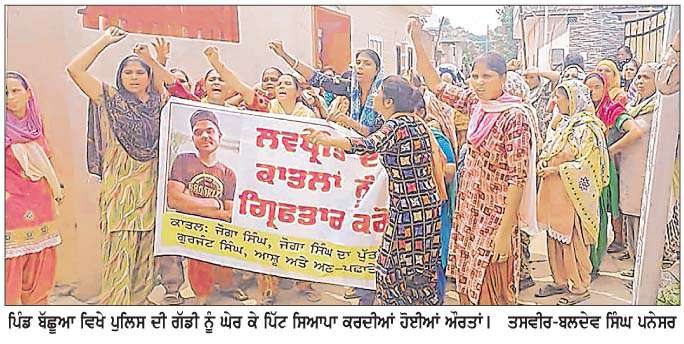 ਲਵਪ੍ਰੀਤ ਦੇ
ਕਾਤਲਾਂ ਨੂੰ
ਗ੍ਰਿਫਤਾਰ ਕਰੋ
ਕਾਤਲ: ਜੱਗਾ ਸਿੰਘ, ਜੋਗਾ ਸਿੰਘ ਦਾ ਪੁੱਤ
ਗੁਰਜੰਟ ਸਿੰਘ, ਆਸ਼ੂ ਅਤੇ ਅਣ-ਪਛਾਤੇ
ਪਿੰਡ ਬੱਛੂਆ ਵਿਖੇ ਪੁਲਿਸ ਦੀ ਗੱਡੀ ਨੂੰ ਘੇਰ ਕੇ ਪਿੱਟ ਸਿਆਪਾ ਕਰਦੀਆਂ ਹੋਈਆਂ ਔਰਤਾਂ। ਤਸਵੀਰ-ਬਲਦੇਵ ਸਿੰਘ ਪਨੇਸਰ